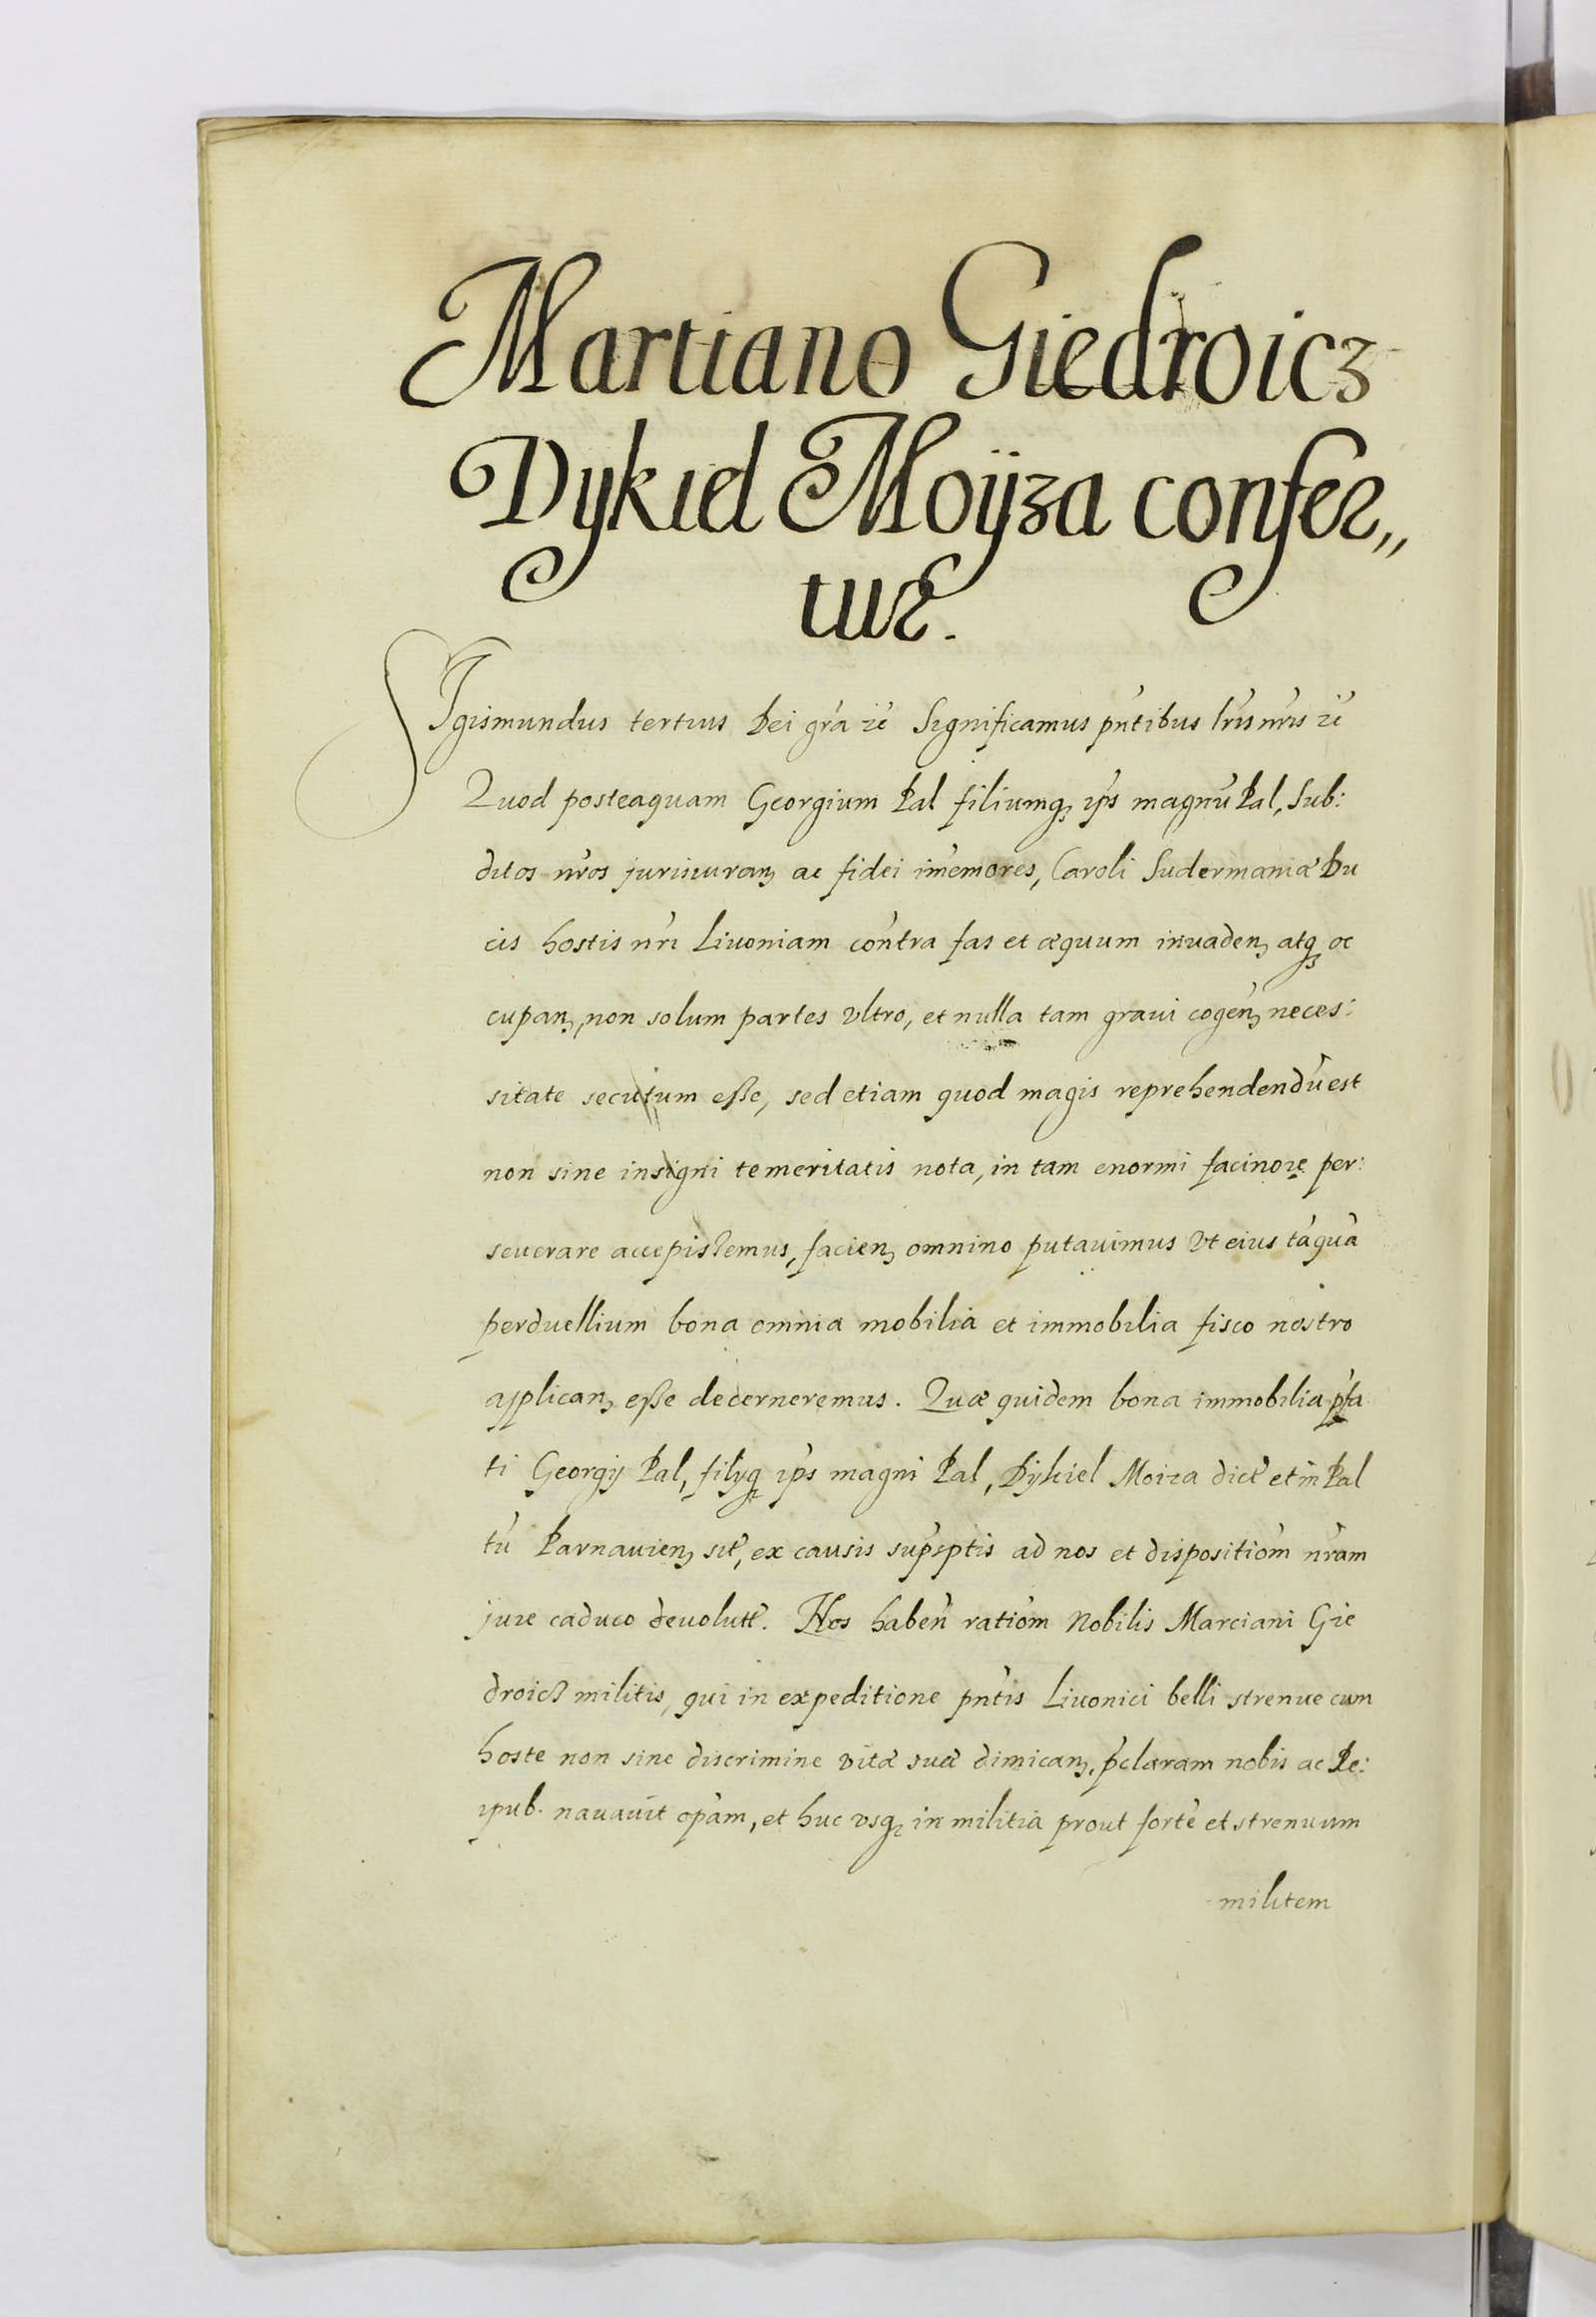 Martiano Giedroicz
Dykiel Moijza confer„
tur.
SIgismundus tertius Dei gra̅ zc̅ Significamus pn̅tibus lr̅is nr̅is zc̅
Quod posteaquam Georgium Pal filiumqꝫ ip̅s magnu̅ Pal, Sub:
ditos nr̅os juriiuranꝫ ac fidei im̅emores, Caroli Sudermaniæ Du
cis hostis nr̅i Liuoniam contra fas et æquum inuadenꝫ atqꝫ oc
cupanꝫ, non solum partes vltro, et nulla tam graui cogenꝫ neces:
sitate secutum esse, sed etiam quod magis reprehendendu̅ est
non sine insigni temeritatis nota, in tam enormi facinore per:
seuerare accepissemus, facienꝫ omnino putauimus vt eius ta̅qua̅
perduellium bona omnia mobilia et immobilia fisco nostro
applicanꝫ esse decerneremus. Quæ quidem bona immobilia p̅fa
ti Georgij Pal, filijqꝫ ip̅s magni Pal, Dijkiel Moiza dict̅ et in Pal
tu̅ Parnauienꝫ sit̅, ex causis sup̅sptis ad nos et dispositio̅m nr̅am
jure caduco deuolutt̅. Nos haben̅ ratio̅m Nobilis Marciani Gie
droicz militis, qui in expeditione pn̅tis Liuonici belli strenue cum
hoste non sine discrimine vitæ suæ dimicanꝫ, p̅claram nobis ac Re:
ipub. nauauit op̅am, et huc vsqꝫ in militia prout forte̅ et strenuum
militem